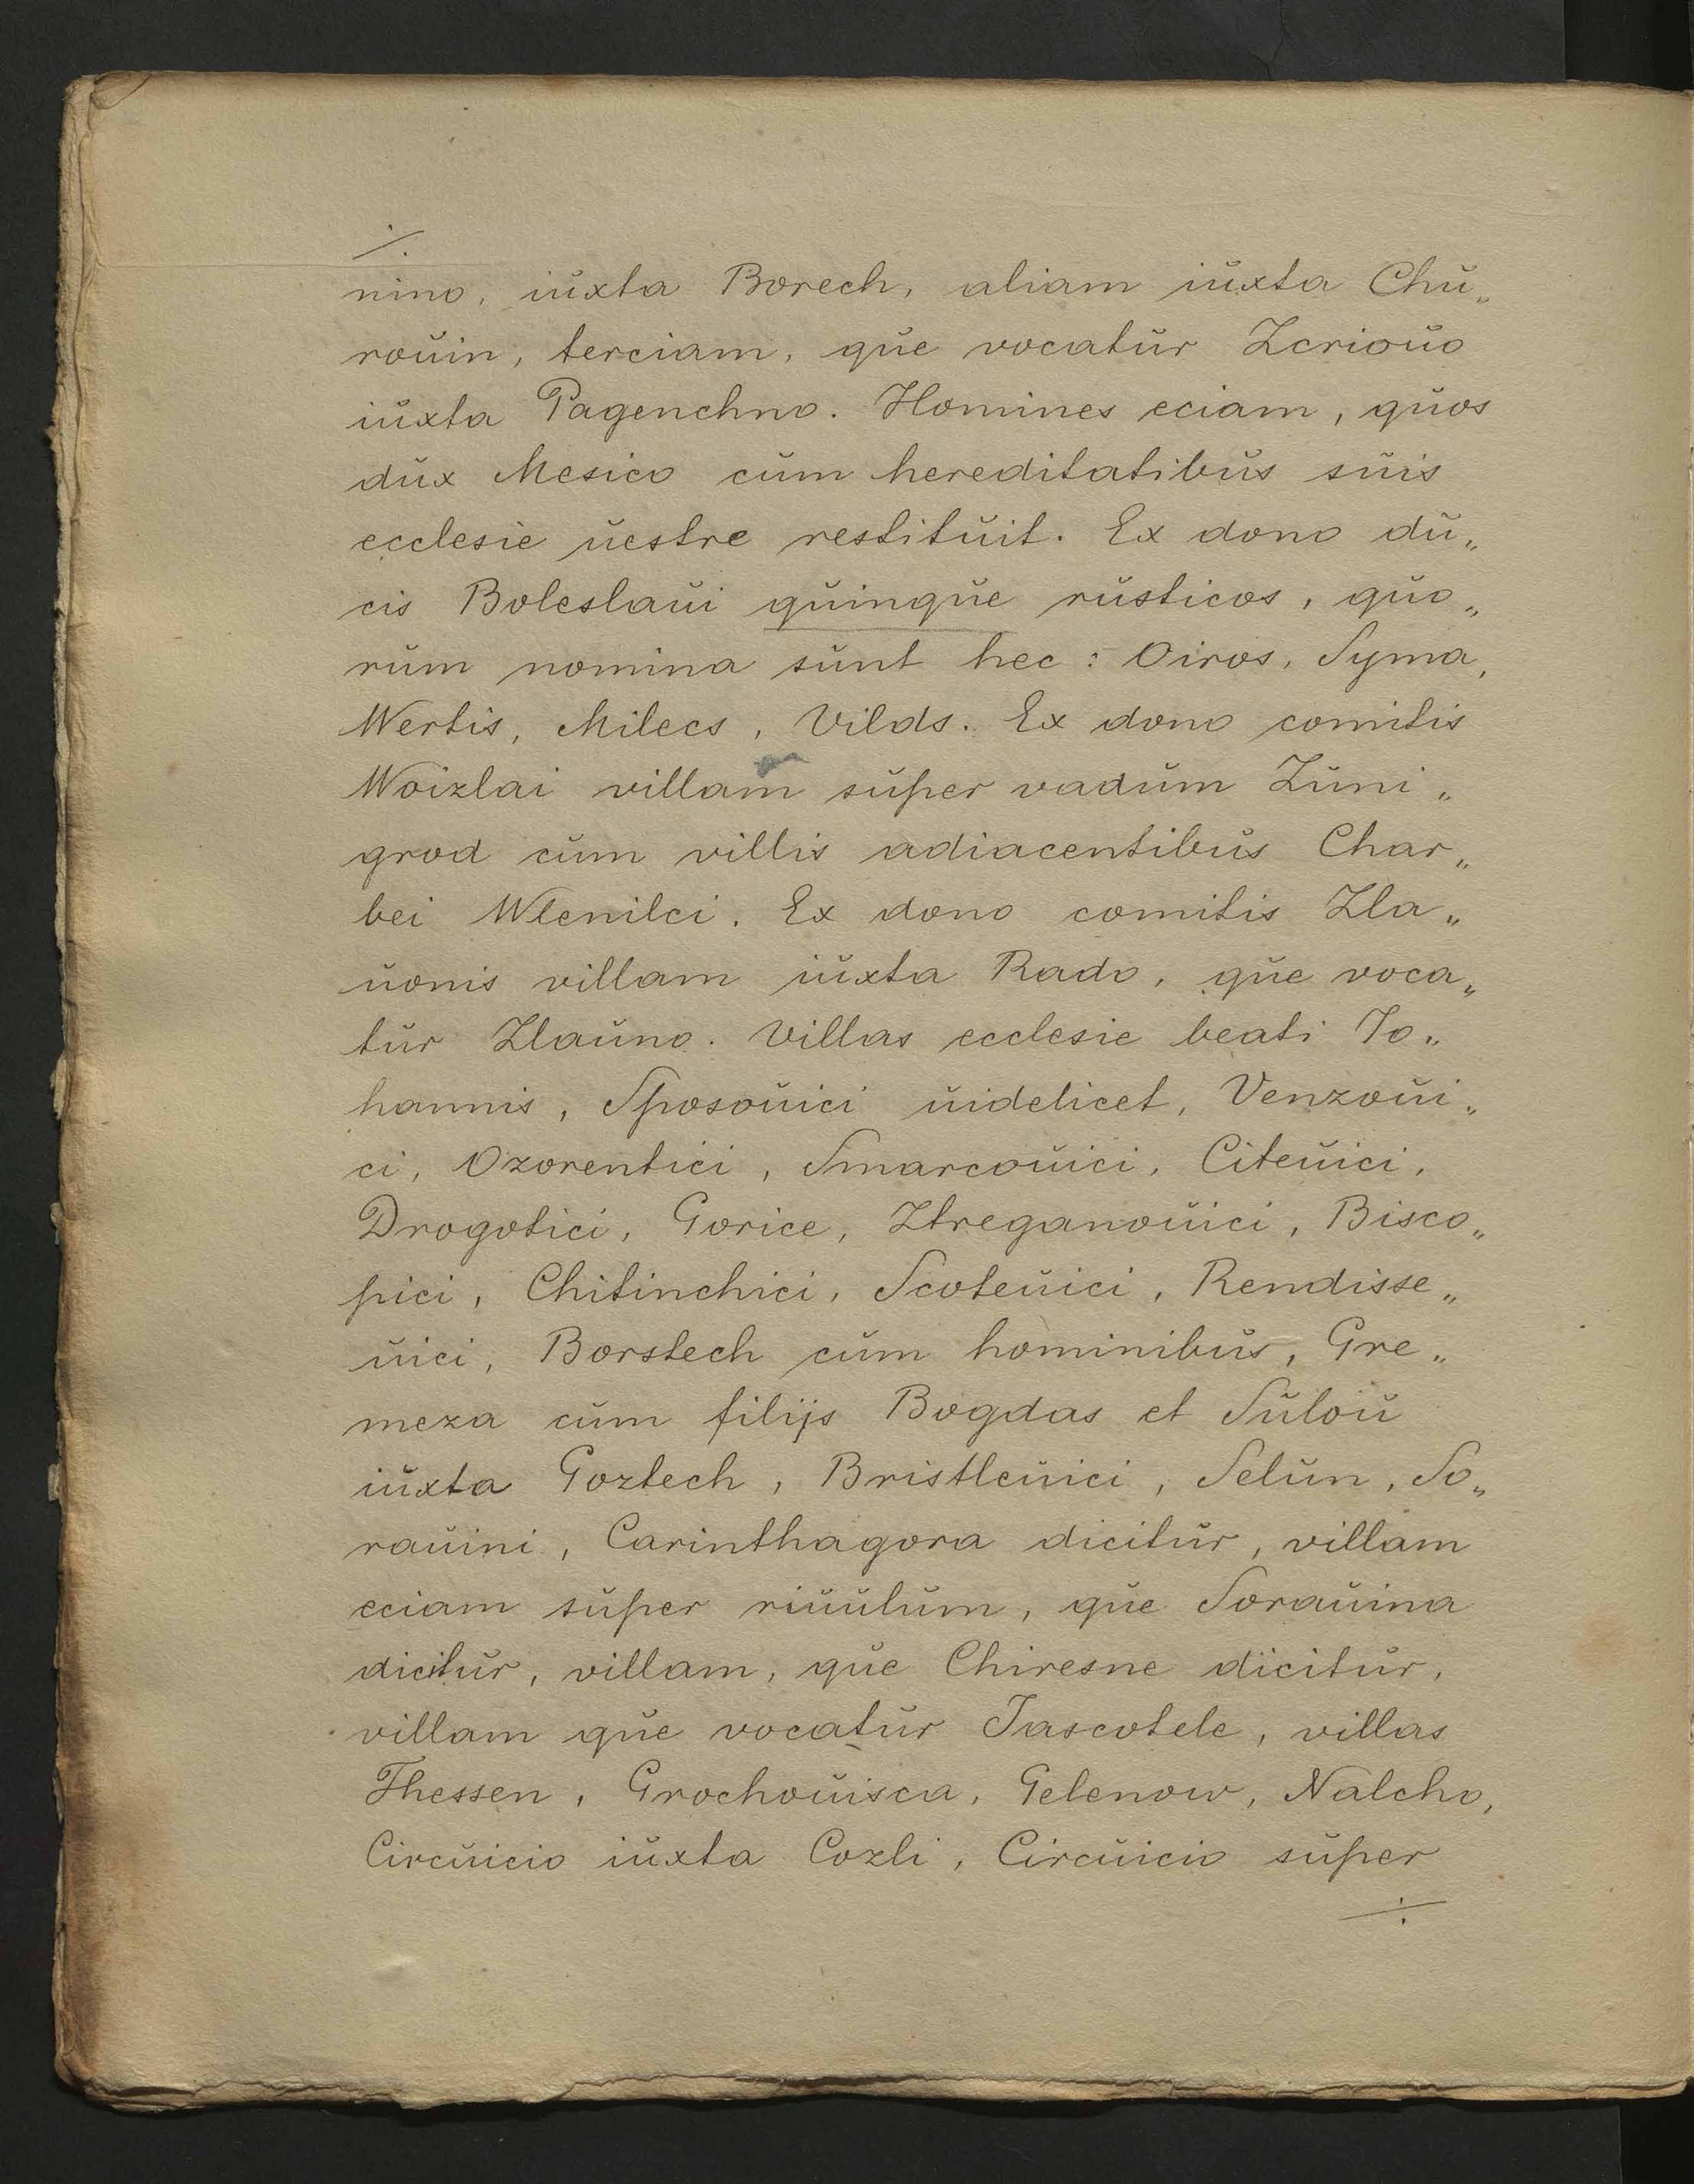 ./.
nino, iŭxta Borech, aliam iŭxta Chŭ„
roŭin, terciam, qŭe vocatŭr Zcrioŭo
iŭxta Pagenchno. Homines eciam, qŭos
dŭx Mesico cŭm hereditatibŭs sŭis
ecclesie ŭestre restitŭit. Ex dono dŭ„
cis Boleslaŭi qŭinqŭe rŭsticos, qŭo„
rŭm nomina sŭnt hec: Oiros, Syma,
Wertis, Milecs, Vilds. Ex dono comitis
Woizlai villam sŭper vadŭm Zŭni„
grod cŭm villis adiacentibŭs Char„
bei Wlenilci. Ex dono comitis Zla„
ŭonis villam iŭxta Rado, qŭe voca„
tŭr Zlaŭno. Villas ecclesie beati Jo„
hannis, Sposoŭici ŭidelicet, Venzoŭi„
ci, Ozorentici, Smarcoŭici, Citeŭici,
Drogotici, Gorice, Ztreganoŭici, Bisco„
pici, Chitinchici, Scoteŭici, Rendisse„
ŭici, Borstech cŭm hominibŭs, Gre„
meza cŭm filijs Bogdas et Sŭloŭ
iŭxta Goztech, Bristleŭici, Selŭn, So„
raŭini, Carinthagora dicitŭr, villam
eciam sŭper riŭŭlŭm, qŭe Soraŭina
dicitŭr, villam, qŭe Chiresne dicitŭr,
villam qŭe vocatŭr Jascotele, villas
Thessen, Grochoŭisca, Gelenow, Nalcho,
Circŭicio iŭxta Cozli, Circŭicio sŭper
./.